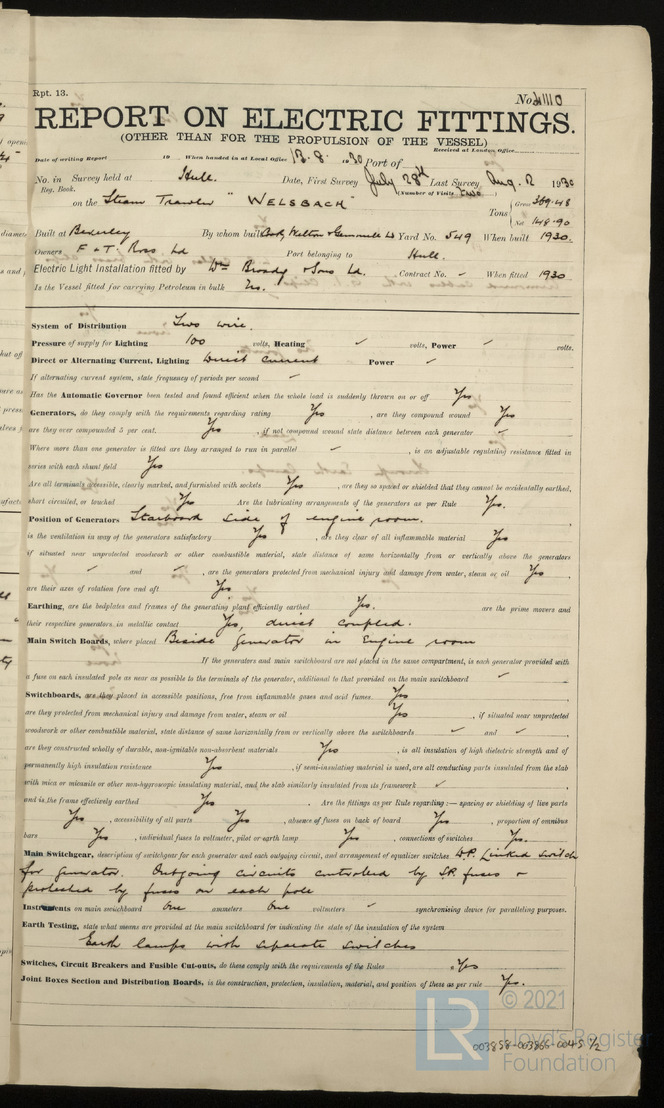 Rpt. 13.
No. 41110
REPORT ON ELECTRIC FITTINGS.
(OTHER THAN FOR THE PROPULSION OF THE VESSEL)
Received at London Office
Date of writing Report 19 When handed in at Local Office 13.8.1930 Port of
No. in Survey held at Hull. Date, First Survey July 28th Last Survey Aug. 12 1930
Reg. Book. (Number of Visits Two
on the Steam Trawler "WELSBACH" Tons { Gross 369.48
Net 148.90
Built at Beverley By whom built Cook, Welton & Gemmell Ld Yard No. 549 When built 1930.
Owners F & T. Ross Ld Port belonging to Hull.
Electric Light Installation fitted by Wm Broady & Sons Ld. Contract No. - When fitted 1930
Is the Vessel fitted for carrying Petroleum in bulk No.
System of Distribution Two wire.
Pressure of supply for Lighting 100 volts, Heating ✓ volts, Power ✓ volts.
Direct or Alternating Current, Lighting Direct Current Power ✓
If alternating current system, state frequency of periods per second ✓
Has the Automatic Governor been tested and found efficient when the whole load is suddenly thrown on or off Yes
Generators, do they comply with the requirements regarding rating Yes, are they compound wound Yes
are they over compounded 5 per cent. Yes, if not compound wound state distance between each generator ✓
Where more than one generator is fitted are they arranged to run in parallel ✓, is an adjustable regulating resistance fitted in
series with each shunt field Yes
Are all terminals accessible, clearly marked, and furnished with sockets Yes, are they so spaced or shielded that they cannot be accidentally earthed,
short circuited, or touched Yes Are the lubricating arrangements of the generators as per Rule Yes.
Position of Generators Starboard side of engine room.
is the ventilation in way of the generators satisfactory Yes, are they clear of all inflammable material Yes
if situated near unprotected woodwork or other combustible material, state distance of same horizontally from or vertically above the generators
✓ and ✓, are the generators protected from mechanical injury and damage from water, steam or oil Yes,
are their axes of rotation fore and aft Yes
Earthing, are the bedplates and frames of the generating plant efficiently earthed Yes. are the prime movers and
their respective generators in metallic contact Yes, direct coupled.
Main Switch Boards, where placed Beside Generator in Engine room
If the generators and main switchboard are not placed in the same compartment, is each generator provided with
a fuse on each insulated pole as near as possible to the terminals of the generator, additional to that provided on the main switchboard ✓
Switchboards, are they placed in accessible positions, free from inflammable gases and acid fumes. Yes
are they protected from mechanical injury and damage from water, steam or oil Yes, if situated near unprotected
woodwork or other combustible material, state distance of same horizontally from or vertically above the switchboards ✓ and ✓,
are they constructed wholly of durable, non-ignitable non-absorbent materials Yes, is all insulation of high dielectric strength and of
permanently high insulation resistance Yes, if semi-insulating material is used, are all conducting parts insulated from the slab
with mica or micanite or other non-hygroscopic insulating material, and the slab similarly insulated from its framework ✓,
and is the frame effectively earthed Yes. Are the fittings as per Rule regarding:— spacing or shielding of live parts
Yes, accessibility of all parts Yes, absence of fuses on back of board Yes, proportion of omnibus
bars Yes, individual fuses to voltmeter, pilot or earth lamp Yes, connections of switches Yes.
Main Switchgear, description of switchgear for each generator and each outgoing circuit, and arrangement of equalizer switches D.P. Linked Switch
for generator. Outgoing circuits controlled by S.P. fuses &
protected by fuses on each pole
Instruments on main switchboard One ammeters One voltmeters ✓ synchronising device for paralleling purposes.
Earth Testing, state what means are provided at the main switchboard for indicating the state of the insulation of the system
Earth lamps with separate switches
Switches, Circuit Breakers and Fusible Cut-outs, do these comply with the requirements of the Rules Yes
Joint Boxes Section and Distribution Boards, is the construction, protection, insulation, material, and position of these as per rule Yes.
LR © 2021
Lloyd's Register
Foundation
003858-003866-004-5 1/2